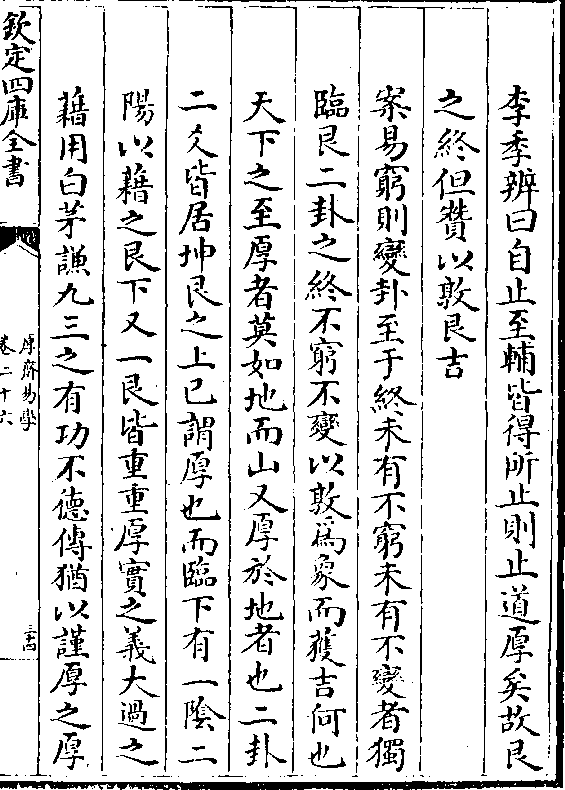 李季辨曰自止至輔皆得所止則止道厚矣故艮
之終但賛以敦艮吉
案易窮則變卦至于終未有不窮未有不變者獨
臨艮二卦之終不窮不變以敦為象而獲吉何也
天下之至厚者莫如地而山又厚於地者也二卦
二爻皆居坤艮之上已謂厚也而臨下有一陰二
陽以藉之艮下又一艮皆重重厚實之義大過之
藉用白茅謙九三之有功不德傳猶以謹厚之厚
欽定四庫全書
厚齋易學
卷二十六
三四